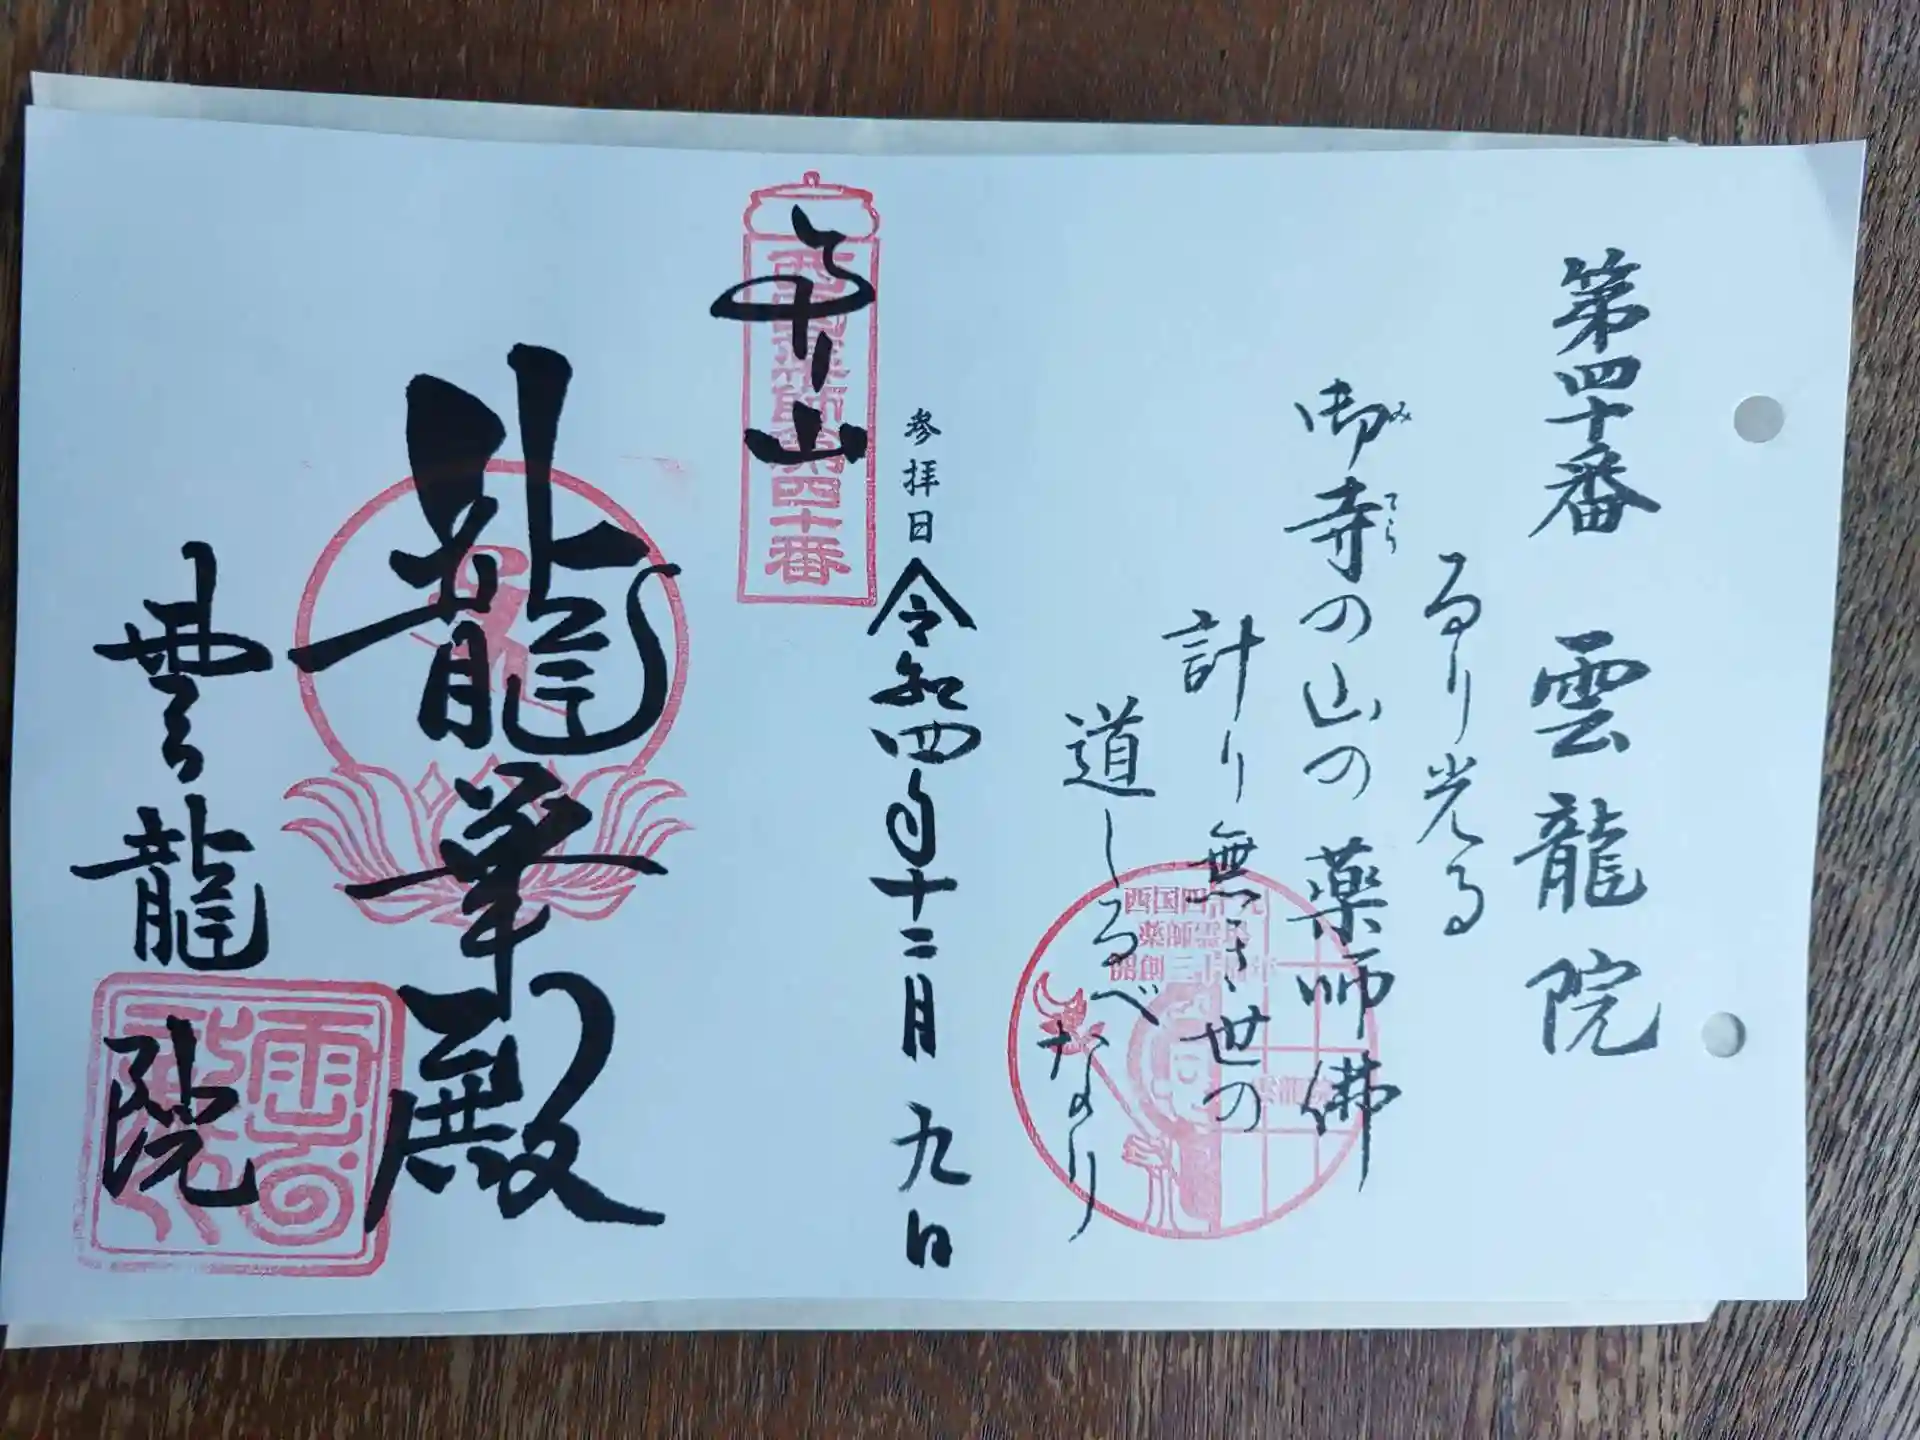 第四十番 雲龍院
るり光る
御寺の山の薬師佛
み
てら
計り無き世の
道しるべなり
西国四十九
薬師霊場
雲龍院
参拝日
令和四年十二月九日
西国薬師第四十番
奉拝
龍華殿
雲龍院